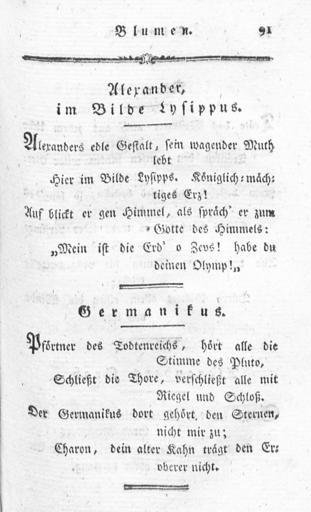 Blumen. 91
Alexander,
im Bilde Lysippus.
Alexanders edle Gestalt, sein wagender Muth
lebt
Hier im Bilde Lysipps. Königlich-mäch-
tiges Erz!
Auf blickt er gen Himmel, als spräch' er zum
Gotte des Himmels:
„Mein ist die Erd' o Zevs! habe du
deinen Olymp!„
Germanikus.
Pförtner des Todtenreichs, hört alle die
Stimme des Pluto,
Schließt die Thore, verschließt alle mit
Riegel und Schloß.
Der Germanikus dort gehört den Sternen,
nicht mir zu;
Charon, dein alter Kahn trägt den Er-
oberer nicht.